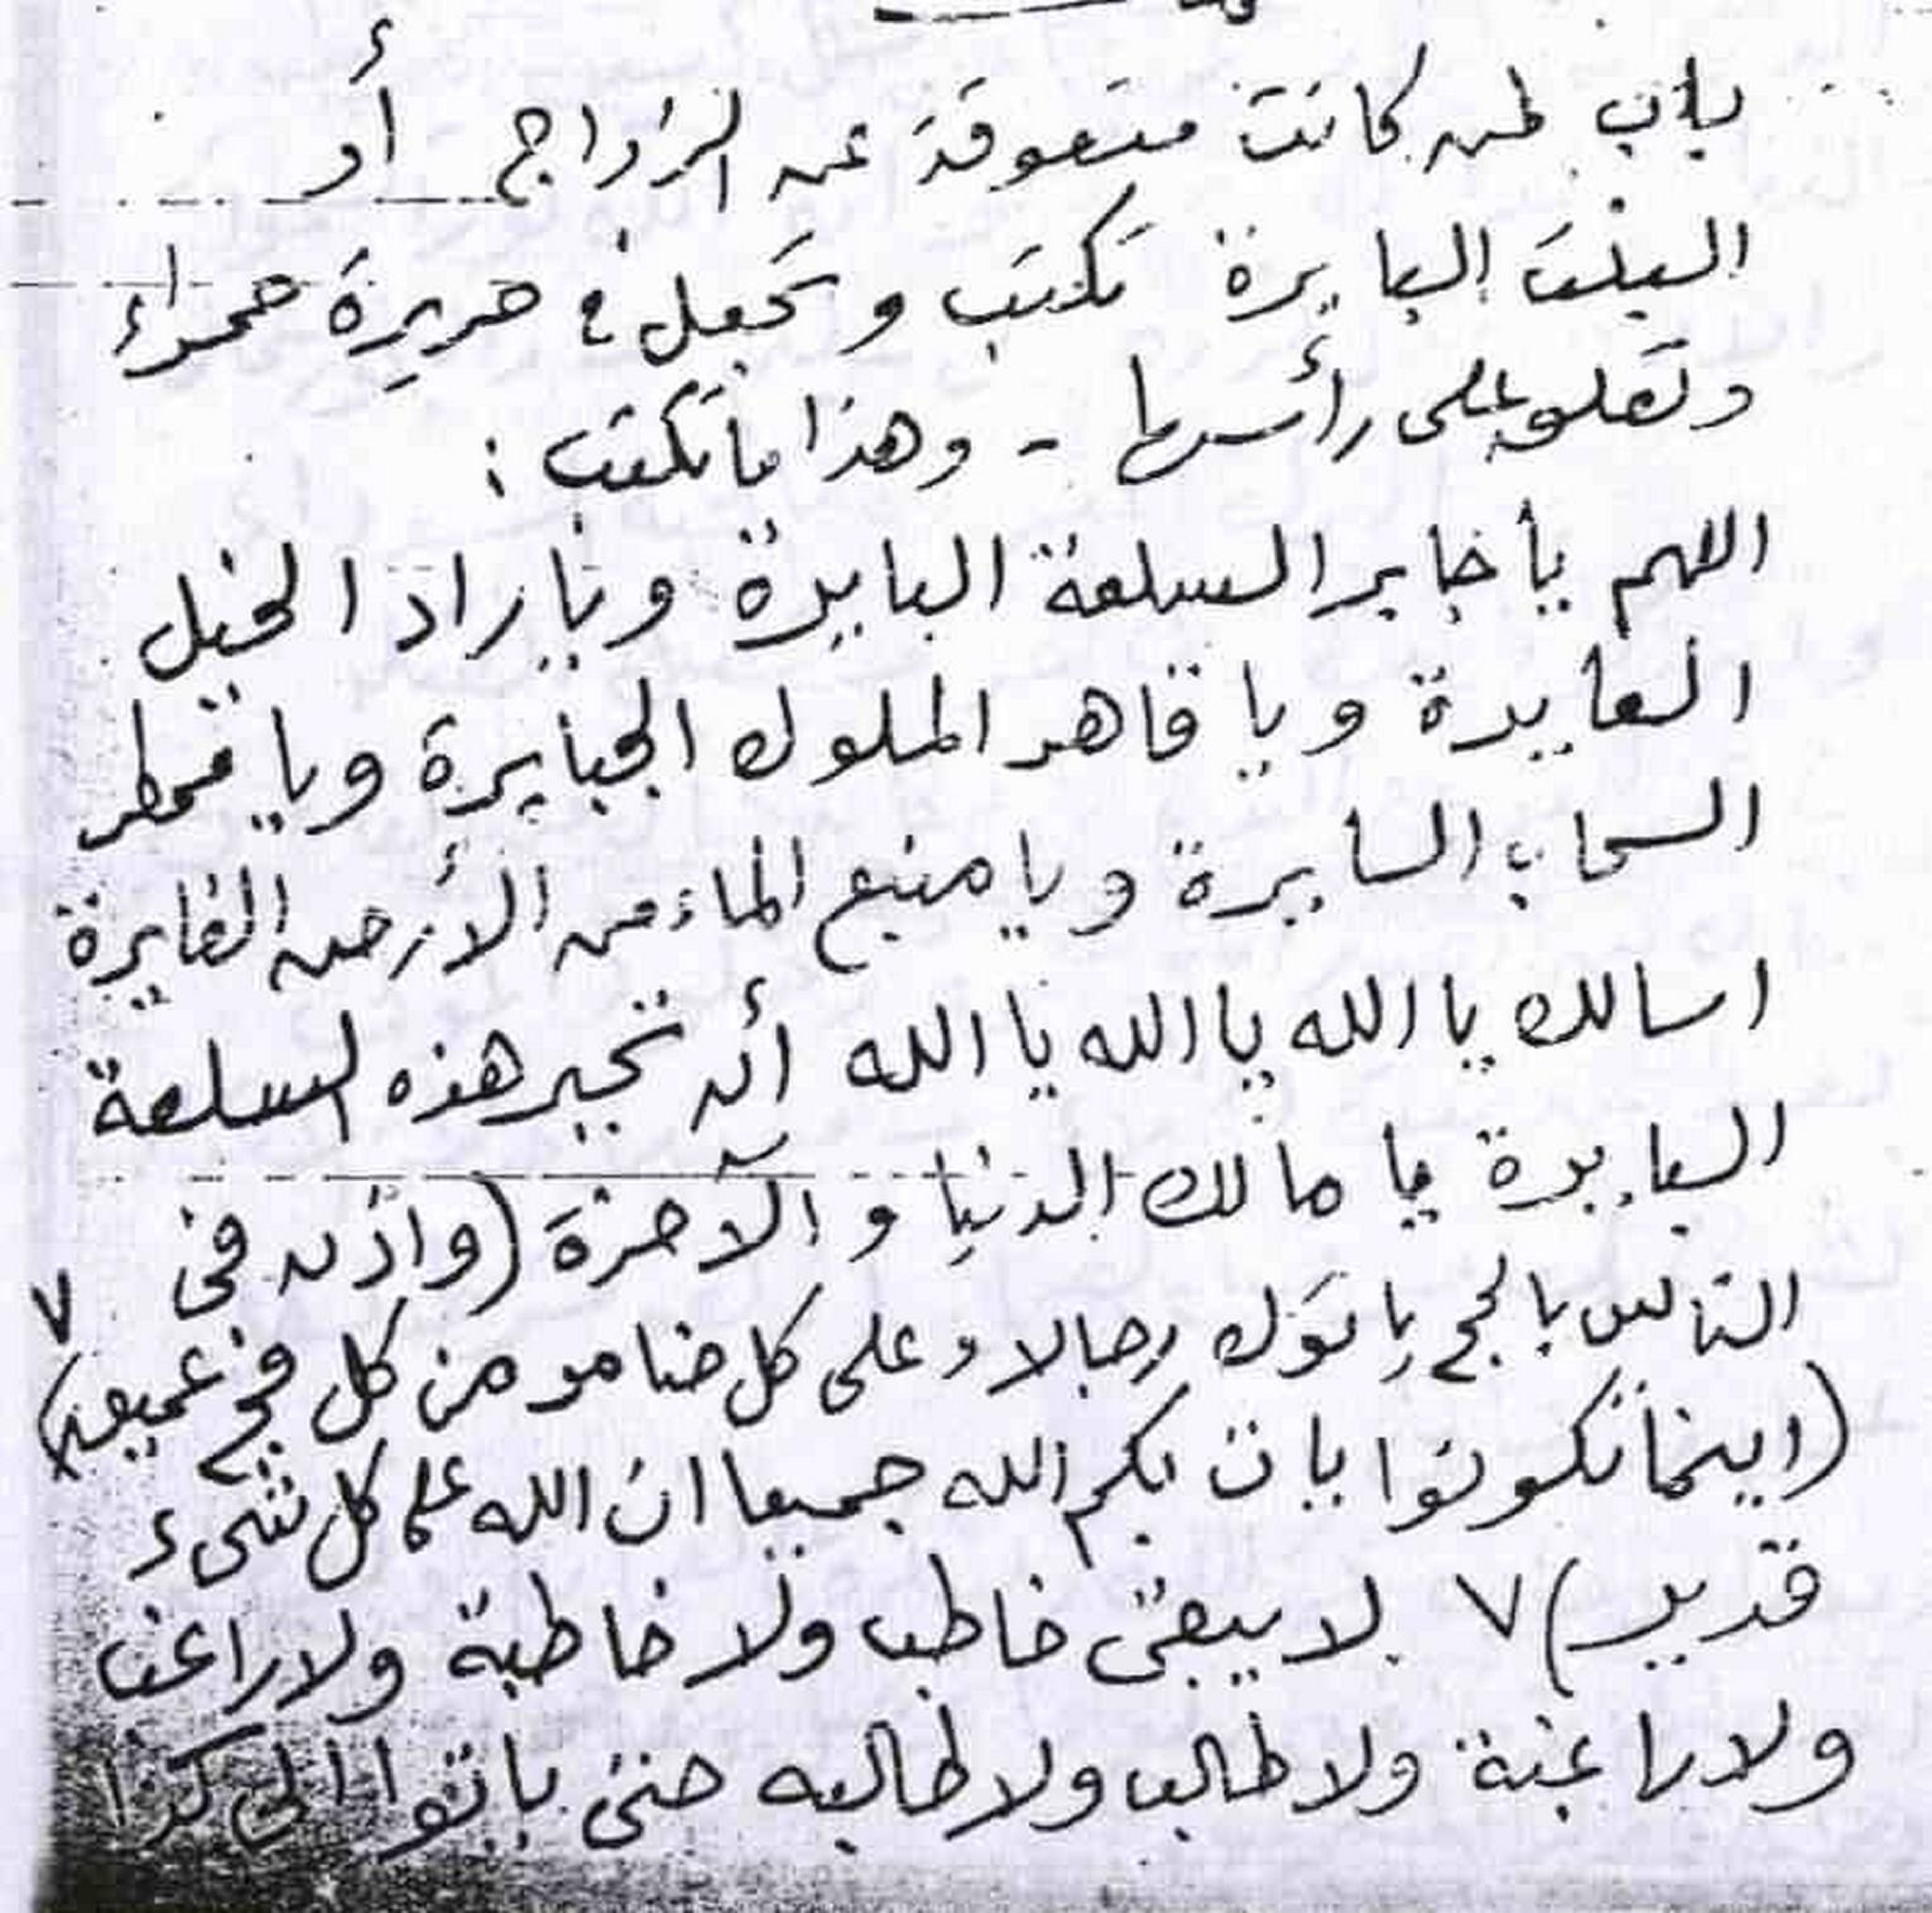 باب لمن كانت متعوقة عن الزواج أو
البنت البايرة تكتب وتجعل في حريرة حمراء
وتعلق على رأسها - وهذا ما تكتب :
اللهم يا جابر السلعة البايرة ويا راد الخيل
العايدة ويا قاهر الملوك الجبايرة ويا ممطر
السحاب السايرة ويا منبع الماء من الأرض الغايرة
اسالك يا الله يا الله يا الله أن تجبر هذه السلعة
البايرة يا مالك الدنيا و الآخرة (واذن في
الناس بالحج ياتوك رجالا وعلى كل ضامر من كل فج عميق) ٧
(اينما تكونوا يات بكم الله جميعا ان الله على كل شىء
قدير) ٧ لا يبقى خاطب ولا خاطبة ولا راغب
ولا راغبة ولا طالب ولا طالبه حتى ياتوا الى كذا